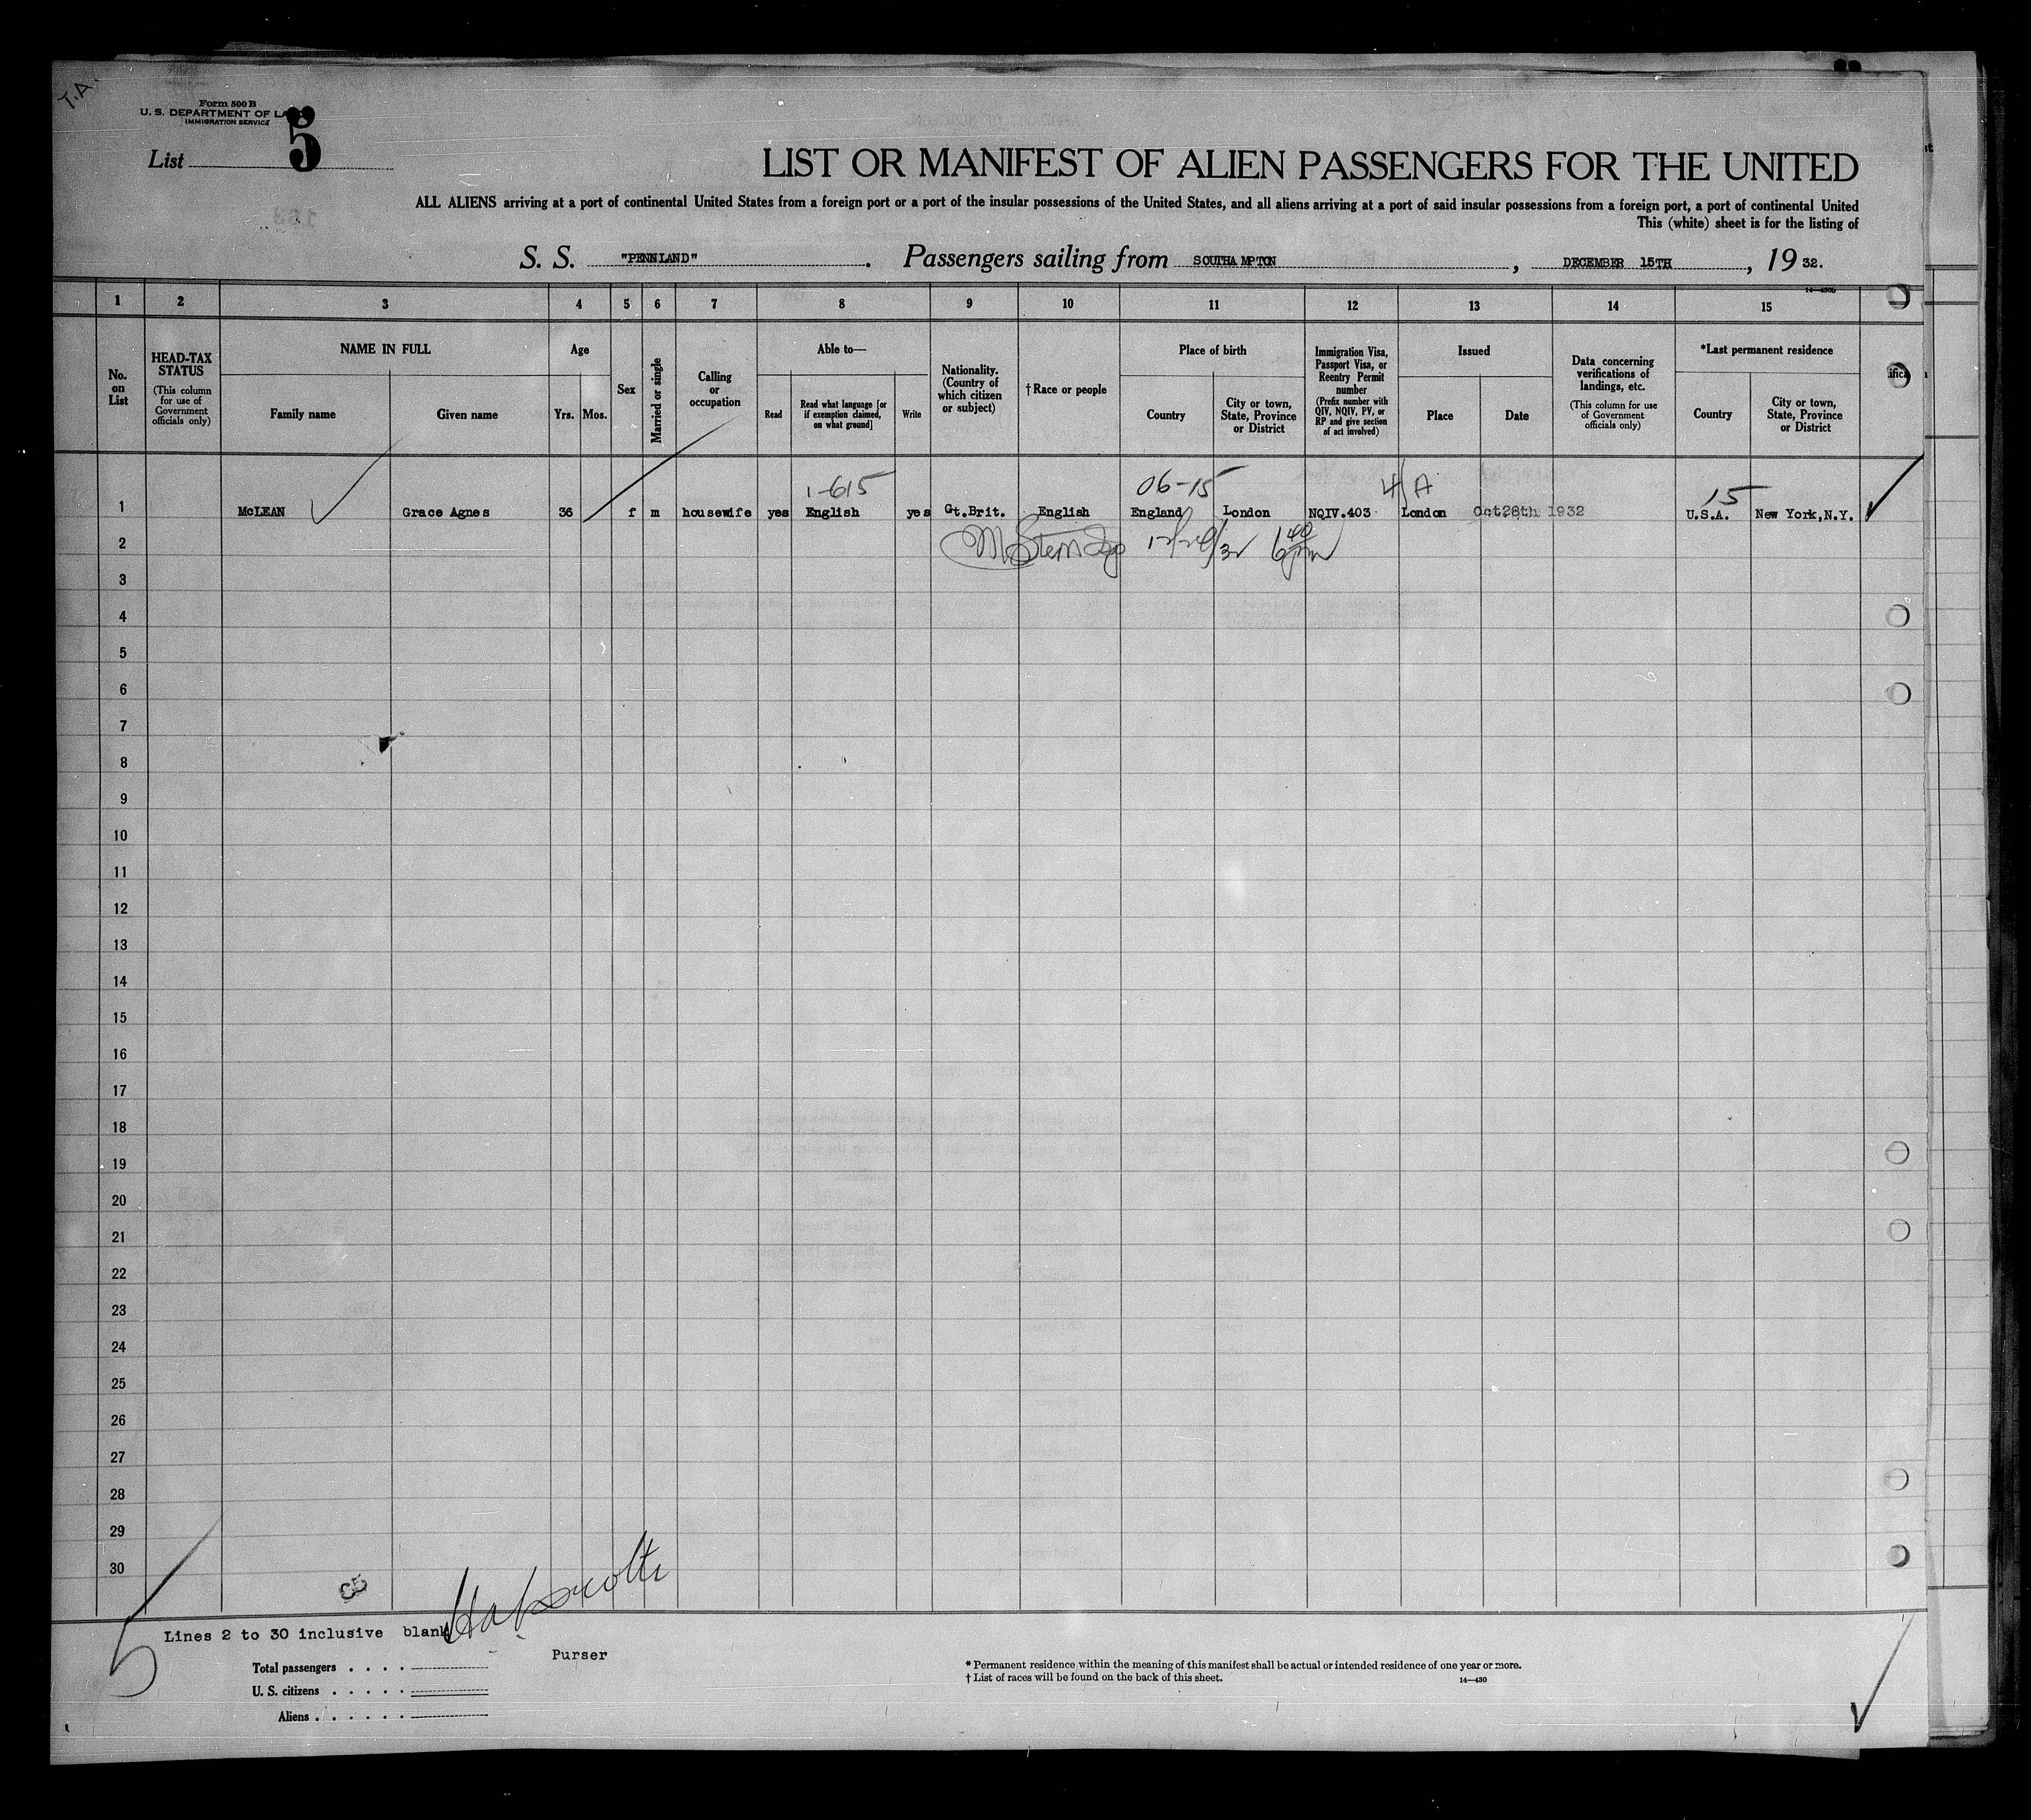 T.A.
Form 500 B
U. S. DEPARTMENT OF LA
IMMIGRATION SERVICE
List 5
LIST OR MANIFEST OF ALIEN PASSENGERS FOR THE UNITED
ALL ALIENS arriving at a port of continental United States from a foreign port or a port of the insular possessions of the United States, and all aliens arriving at a port of said insular possessions from a foreign port, a port of continental United
This (white) sheet is for the listing of
S. S. "PENNLAND". Passengers sailing from SOUTHAMPTON, DECEMBER 15TH, 1932.
14—430b
1 2 3 4 5 6 7 8 9 10 11 12 13 14 15
No. on List
HEAD-TAX STATUS
(This column for use of Government officials only)
NAME IN FULL
Family name Given name
Age
Yrs. Mos.
Sex
Married or single
Calling or occupation
Able to—
Read
Read what language [or if exemption claimed, on what ground]
Write
Nationality. (Country of which citizen or subject)
† Race or people
Place of birth
Country
City or town, State, Province or District
Immigration Visa, Passport Visa, or Reentry Permit number
(Prefix number with QIV, NQIV, PV, or RP and give section of act involved)
Issued
Place Date
Data concerning verifications of landings, etc.
(This column for use of Government officials only)
*Last permanent residence
Country
City or town, State, Province or District
1-615 06-15 4/A 15
1 McLEAN Grace Agnes 36 f m housewife yes English yes Gt.Brit. English England London NQIV.403 London Oct28th 1932 U.S.A. New York,N.Y.
2
3
4
5
6
7
8
9
10
11
12
13
14
15
16
17
18
19
20
21
22
23
24
25
26
27
28
29
30
5
Lines 2 to 30 inclusive blank
Purser
Total passengers . . . .
U. S. citizens . . . . .
Aliens . . . . . .
* Permanent residence within the meaning of this manifest shall be actual or intended residence of one year or more.
† List of races will be found on the back of this sheet.
14—430